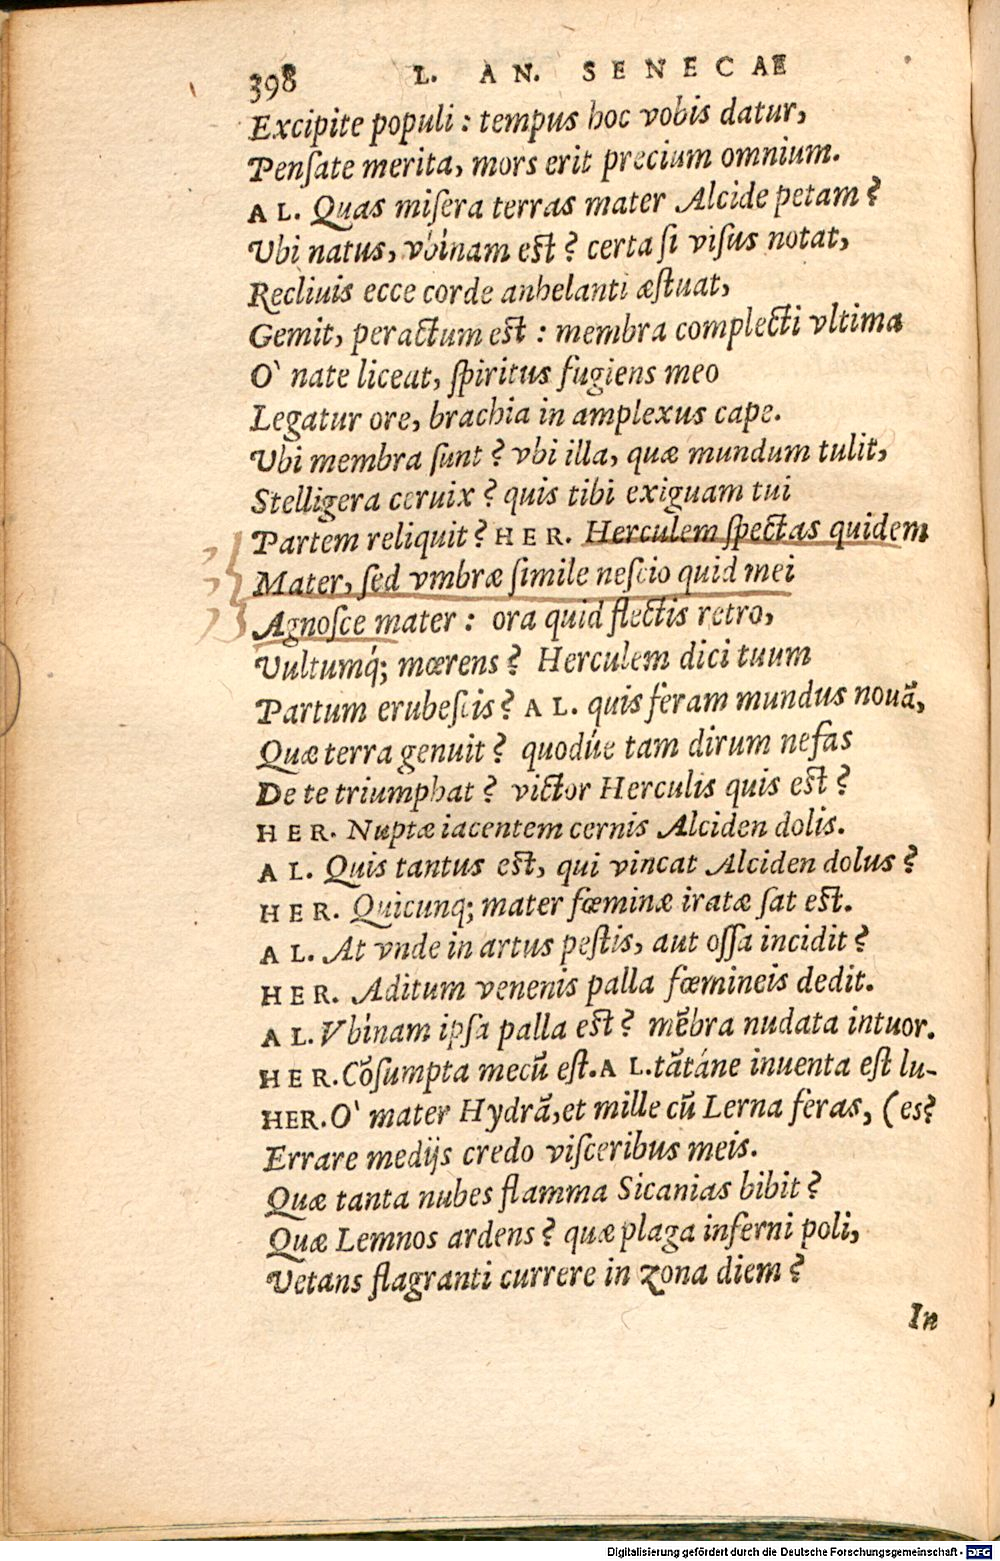 398 L. AN. SENECAE
Excipite populi : tempus hoc vobis datur,
Penſate merita, mors erit precium omnium.
AL. Quas miſera terras mater Alcide petam?
Vbi natus, vbínam est? certa ſi viſus notat,
Recliuis ecce corde anhelanti æſtuat,
Gemit, peractum est : membra complecti vltima
O` nate liceat, ſpiritus fugiens meo
Legatur ore, brachia in amplexus cape.
Vbi membra ſunt? vbi illa, quæ mundum tulit,
Stelligera ceruix? quis tibi exiguam tui
Partem reliquit? HER. Herculem ſpectas quidem
Mater, ſed vmbræ ſimile neſcio quid mei
Agnoſce mater : ora quid flectis retro,
Vultumq́; mœrens? Herculem dici tuum
Partum erubeſcis? AL. quis feram mundus nouã,
Quæ terra genuit? quodúe tam dirum nefas
De te triumphat? victor Herculis quis est?
HER. Nuptæ iacentem cernis Alciden dolis.
AL. Quis tantus est, qui vincat Alciden dolus?
HER. Quicunq; mater fœminæ iratæ ſat est.
AL. At vnde in artus peſtis, aut oſſa incidit?
HER. Aditum venenis palla fœmineis dedit.
AL. Vbínam ipſa palla est? mẽbra nudata intuor.
HER. Cõſumpta mecũ eſt. AL. tãtáne inuenta eſt lu-
HER. O` mater Hydrã, et mille cũ Lerna feras, (es?
Errare medijs credo viſceribus meis.
Quæ tanta nubes flamma Sicanias bibit?
Quæ Lemnos ardens? quæ plaga inferni poli,
Vetans flagranti currere in zona diem?
In
Digitalisierung gefördert durch die Deutsche Forschungsgemeinschaft - DFG